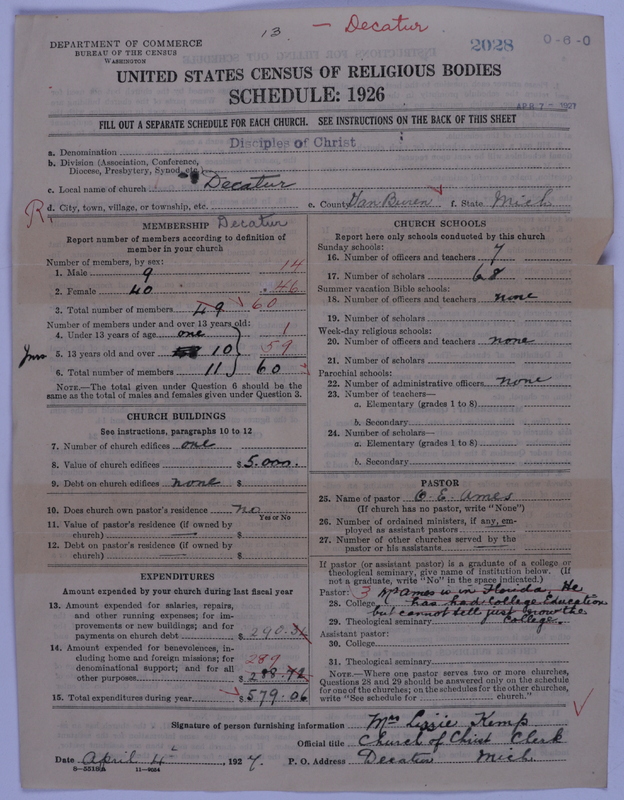 13 — Decatur
DEPARTMENT OF COMMERCE
BUREAU OF THE CENSUS
WASHINGTON
2028
0-6-0
UNITED STATES CENSUS OF RELIGIOUS BODIES
SCHEDULE: 1926
APR 7 - 1927
FILL OUT A SEPARATE SCHEDULE FOR EACH CHURCH. SEE INSTRUCTIONS ON THE BACK OF THIS SHEET
a. Denomination Disciples of Christ
b. Division (Association, Conference, Diocese, Presbytery, Synod, etc.)
c. Local name of church Decatur
d. City, town, village, or township, etc. Decatur e. County Van Buren f. State Mich
R
MEMBERSHIP
Report number of members according to definition of member in your church
Number of members, by sex:
1. Male 9 14
2. Female 40 46
3. Total number of members 49 60
Number of members under and over 13 years old:
4. Under 13 years of age one 1
5. 13 years old and over 10 59
6. Total number of members 11 60
NOTE.—The total given under Question 6 should be the same as the total of males and females given under Question 3.
CHURCH BUILDINGS
See instructions, paragraphs 10 to 12
7. Number of church edifices one
8. Value of church edifices $5.000.
9. Debt on church edifices none $
10. Does church own pastor's residence no
Yes or No
11. Value of pastor's residence (if owned by church) — $
12. Debt on pastor's residence (if owned by church) — $
EXPENDITURES
Amount expended by your church during last fiscal year
13. Amount expended for salaries, repairs, and other running expenses; for improvements or new buildings; and for payments on church debt $ 290.34
14. Amount expended for benevolences, including home and foreign missions; for denominational support; and for all other purposes 289 $ 288.72
15. Total expenditures during year $ 579.06
CHURCH SCHOOLS
Report here only schools conducted by this church
Sunday schools:
16. Number of officers and teachers 7
17. Number of scholars 68
Summer vacation Bible schools:
18. Number of officers and teachers none
19. Number of scholars
Week-day religious schools:
20. Number of officers and teachers none
21. Number of scholars
Parochial schools:
22. Number of administrative officers none
23. Number of teachers—
a. Elementary (grades 1 to 8)
b. Secondary
24. Number of scholars—
a. Elementary (grades 1 to 8)
b. Secondary
PASTOR
25. Name of pastor O. E. Ames
(If church has no pastor, write "None")
26. Number of ordained ministers, if any, employed as assistant pastors
27. Number of other churches served by the pastor or his assistants —
If pastor (or assistant pastor) is a graduate of a college or theological seminary, give name of institution below. (If not a graduate, write "No" in the space indicated.)
Pastor: 3 Mr Ames is in Florida. He
28. College has had College Education
but cannot tell just now the
29. Theological seminary College.
Assistant pastor:
30. College
31. Theological seminary
NOTE.—Where one pastor serves two or more churches, Questions 28 and 29 should be answered only on the schedule for one of the churches; on the schedules for the other churches, write "See schedule for church."
Signature of person furnishing information Mrs Lizzie Kemp
Official title Church of Christ Clerk
Date April 4, 1927. P. O. Address Decatur Mich.
8-5518A 11-9064